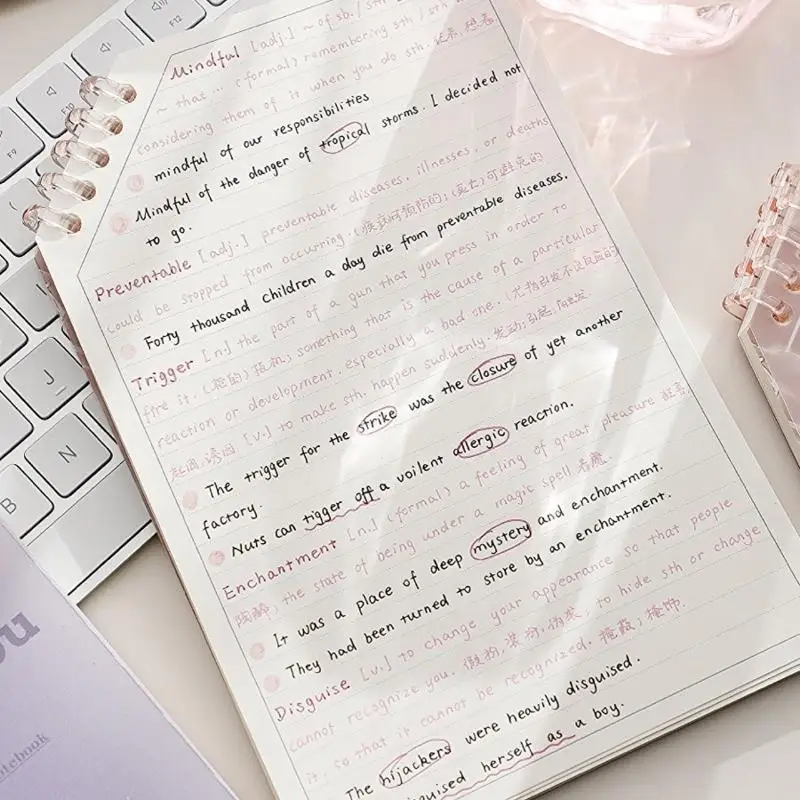 Mindful [adj.] ~ of sb. / sth / sth
~ that ... (formal) remembering sth / sth
considering them of it when you do sth. 记着, 想着
mindful of our responsibilities
Mindful of the danger of tropical storms. I decided not
to go.
Preventable [adj.] preventable diseases, illnesses, or deaths
could be stopped from occurring. (疾病)可预防的; (死亡)可避免的
Forty thousand children a day die from preventable diseases.
Trigger [n.] the part of a gun that you press in order to
fire it. (枪的)扳机; something that is the cause of a particular
reaction or development, especially a bad one. (尤指引发不良反应的)
起因, 诱因 [v.] to make sth. happen suddenly. 发动; 引起; 触发
The trigger for the strike was the closure of yet another
factory.
Nuts can tigger off a voilent allergic reaction.
Enchantment [n.] (formal) a feeling of great pleasure 狂喜,
陶醉; the state of being under a magic spell 着魔.
It was a place of deep mystery and enchantment.
They had been turned to store by an enchantment.
Disguise [v.] to change your appearance so that people
cannot recognize you. 假扮, 装扮, 伪装; to hide sth or change
it, so that it cannot be recognized. 掩蔽; 掩饰.
The hijackers were heavily disguised.
guised herself as a boy.
F10
F9
J
N
B
ou
notebook